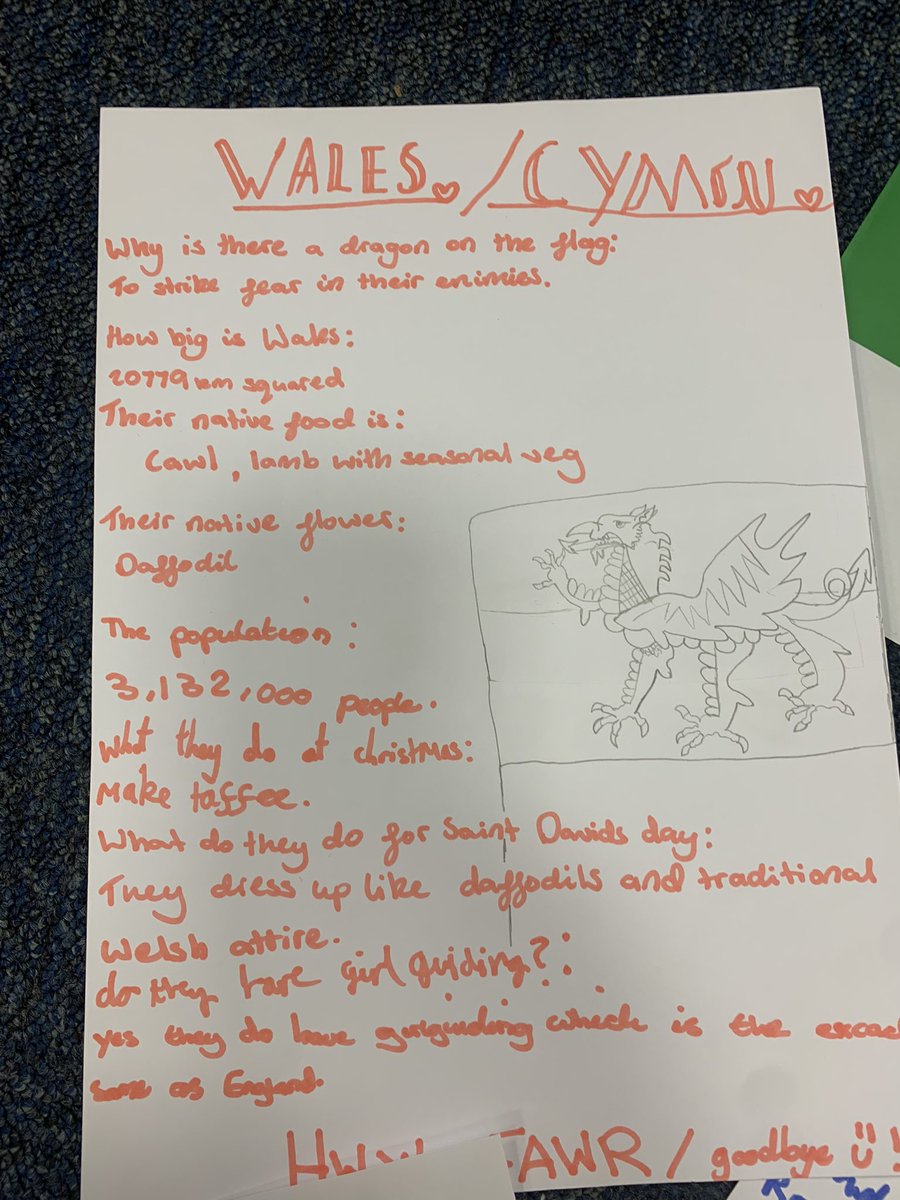 WALES. / CYMRU.
Why is there a dragon on the flag:
To strike fear in their enimies.
How big is Wales:
20779 km squared
Their native food is:
Cawl, lamb with seasonal veg
Their native flower:
Daffodil
The population:
3,132,000 people.
What they do at christmas:
Make taffee.
What do they do for Saint Davids day:
They dress up like daffodils and traditional
Welsh attire.
do they have girl guiding?:
yes they do have girlguiding which is the
same as England.
FAWR / goodbye !